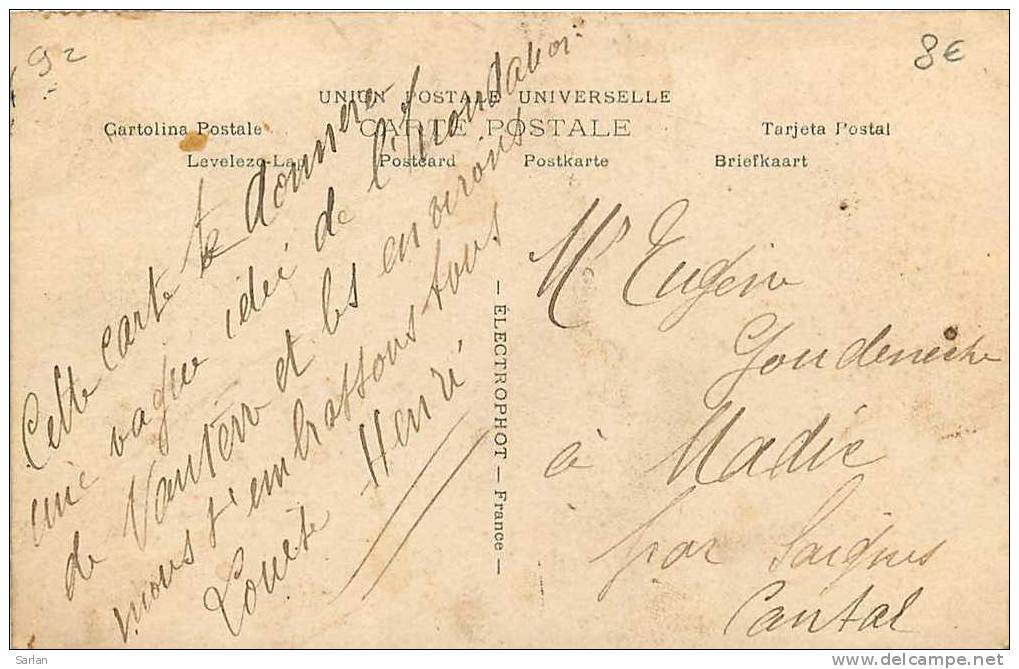 92
8€
UNION POSTALE UNIVERSELLE
CARTE POSTALE
Cartolina Postale
Tarjeta Postal
Levelezo-Lap
Postcard
Postkarte
Briefkaart
Cette carte te donnera
une vague idée de l'inondation
de Nanterre et les environs
nous t'embrassons tous
Louise Henri
— ÉLECTROPHOT — France —
Mr Eugène
Goudeneche
à Madic
par Saignes
Cantal
Sarlan
www.delcampe.net